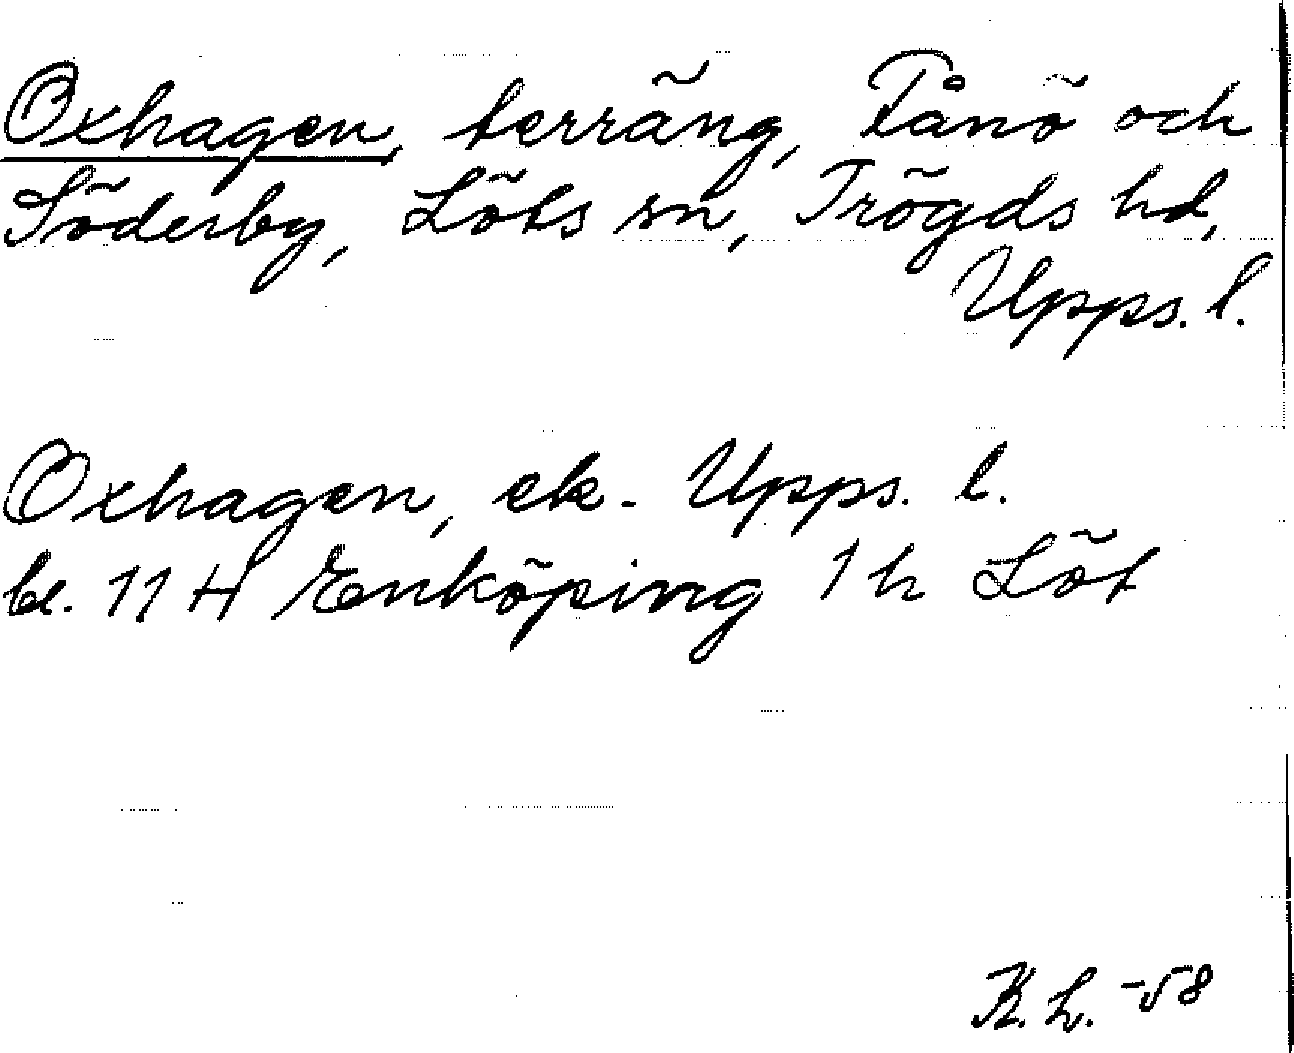 Oxhagen, terräng, Fånö och
Söderby, Löts sn, Trögds hd,
Upps. l.
Oxhagen, ek. Upps. l.
bl. 11 H Enköping 1 h Löt
K. L. -58